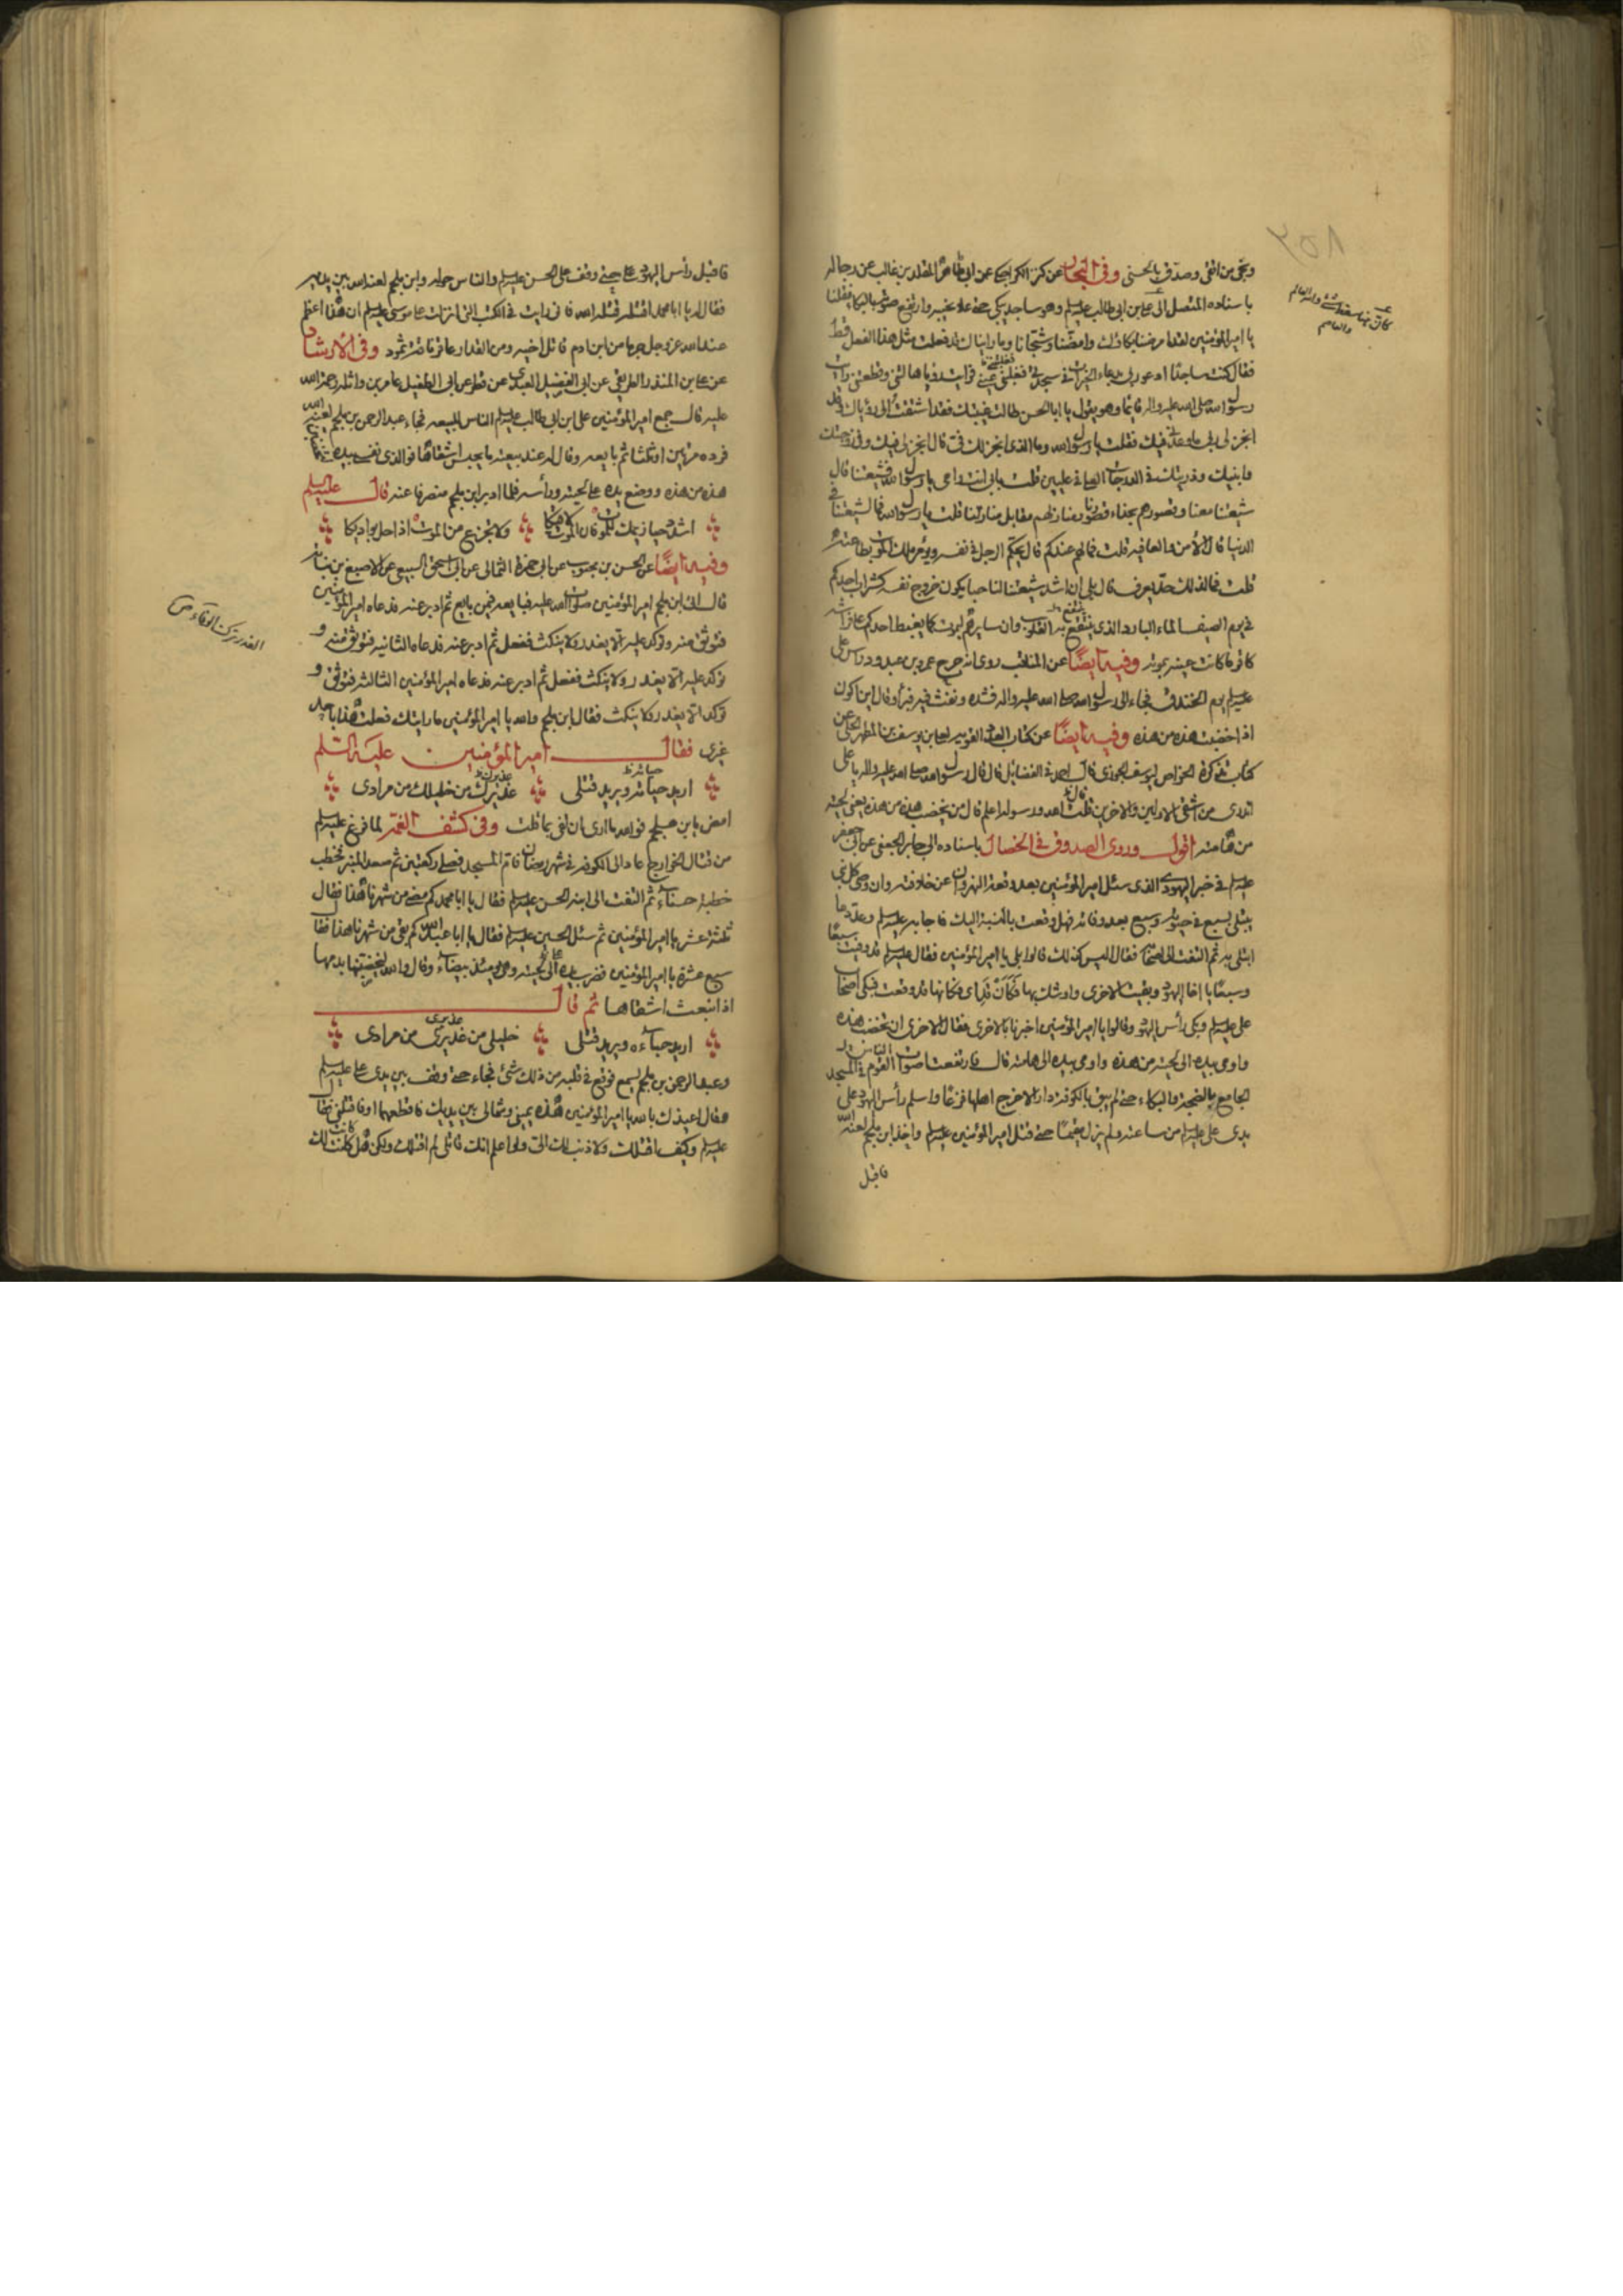 ونجى من اتقى وصدق بالحسنى وفى البحار عن كنز الكراجكى عن ابى طاهر المقلد بن غالب عن رجاله
باسناده المتصل الى على بن ابى طالب عليه السلم وهو ساجد يبكى حتى علا نحيبه وارتفع صوته بالبكاء فقلنا
يا امير المؤمنين لقد امرضنا بكاؤك وامضّنا وشجّانا وما رايناك قد فعلت مثل هذا الفعل قط
فقال كنت ساجدًا ادعو ربى بدعاء الخيرات فى سجدتى فغلبنى عينى فرايت رؤيا هالتنى وفظعتنى رايت
رسول الله صلى الله عليه واله قائما وهو يقول يا ابا الحسن طالت غيبتك فقد اشتقت الى رؤياك وقد
انجز لى ربى ما وعدنى فيك فقلت يا رسول الله وما الذى انجز لك فىّ قال انجز لى فيك وفى زوجتك
وابنيك وذريتك فى الدرجات العلى فى عليين قلت بابى انت وامى يا رسول الله فشيعتنا قال
شيعتنا معنا وقصورهم بحذاء قصورنا ومنازلهم مقابل منازلنا قلت يا رسول الله فما لشيعتنا فى
الدنيا قال الأمن والعافيه قلت فما لهم عند الموت قال يحكم الرجل فى نفسه ويؤمر ملك الموت بطاعته
قلت فما لذلك حدّ يعرف قال بلى ان اشد شيعتنا لنا حبا يكون خروج نفسه كشراب احدكم
فى يوم الصيف الماء البارد الذى ينتقع به القلوب وان سايرهم ليموت كما يغبط احدكم على فراشه
كاقر ما كانت عينه بموته وفيه ايضًا عن المناقب روى انه جرح عمرو بن عبد ود راس على
عليه السلم يوم الخندق فجاء الى رسول الله صلى الله عليه واله فشده ونفث فيه فبرأ وقال اين اكون
اذا خضبت هذه من هذه وفيه ايضًا عن كتاب العدد القويه لعلى بن يوسف بن المطهر الحلى عن
كتاب تذكرة الخواص ليوسف الجوزى قال احمد فى الفضايل قال قال رسول الله صلى الله عليه واله يا على
اتدرى من اشقى الاولين والاخرين قلت الله ورسوله اعلم قال من يخضب هذه من هذه يعنى لحيته
من هامته اقول وروى الصدوق فى الخصال باسناده الى جابر الجعفى عن ابى جعفر
عليه السلم فى خبر اليهودى الذى سئل امير المؤمنين بعد وقعة النهروان عن خلافته وان وصى كل نبى
يبتلى بسبع فى حيوته وسبع بعد وفاته فهل وقعت بالنسبة اليك فاجابه عليه السلم وعد ما
ابتلى به ثم التفت الى اصحابه فقال اليس كذلك قالوا بلى يا امير المؤمنين فقال عليه السلم قد وفيت سبعًا
وسبعًا يا اخا اليهود وبقيت الاخرى واوشك بها فكان قد فبكى اصحاب
على عليه السلم وبكى رأس اليهود وقالوا يا امير المؤمنين اخبرنا بالاخرى فقال الاخرى ان تخضب هذه
واومى بيده الى لحيته من هذه واومى بيده الى هامته قال فارتفعت اصوات القوم فى المسجد
الجامع بالضجة والبكاء حتى لم يبق بالكوفة دار الا خرج اهلها فزعًا واسلم رأس اليهود على
يدى على عليه السلم من ساعته ولم يزل مقيمًا حتى قتل امير المؤمنين عليه السلم واخذ ابن ملجم لعنه الله
فاقبل
فاقبل رأس اليهود على حتى وقف على الحسن عليه السلم والناس حوله وابن ملجم لعنه الله بين يديه
فقال له يا ابا محمد اقتله قتله الله فانى رايت فى الكتب التى انزلت على موسى عليه السلم ان هذا اعظم
عند الله عز وجل جرما من ابن ادم قاتل اخيه ومن القدار عاقر ناقة ثمود وفى الارشاد
عن على بن المنذر الطريقى عن ابى الفضيل العبدى عن فطر عن ابى الطفيل عامر بن واثله رحمة الله
عليه قال جمع امير المؤمنين على ابن ابى طالب عليه السلم الناس للبيعه فجاء عبد الرحمن بن ملجم لعنه الله
فرده مرتين او ثلثا ثم بايعه وقال له عند بيعته ما يحبس اشقاها فوالذى نفسى بيده
هذه من هذه ووضع يده على لحيته وراسه فلما ادبر ابن ملجم منصرفا عنه قال عليه السلم
اشدد حيازيمك للموت فان الموت لاقيكا ولا تجزع من الموت اذا حل بواديكا
وفيه ايضًا عن الحسن بن محبوب عن ابى حمزة الثمالى عن ابى اسحق السبيعى عن الاصبغ بن نباته
قال اتى ابن ملجم امير المؤمنين صلوات الله عليه فبايعه فيمن بايع ثم ادبر عنه فدعاه امير المؤمنين
فتوثق منه وتوكد عليه الا يغدر ولا ينكث ففعل ثم ادبر عنه فدعاه الثانيه فتوثق منه و
توكد عليه الا يغدر ولا ينكث ففعل ثم ادبر عنه فدعاه امير المؤمنين الثالثه فتوثق و
توكد الا يغدر ولا ينكث فقال ابن ملجم والله يا امير المؤمنين ما رايتك فعلت هذا باحد
غيرى فقال امير المؤمنين عليه السلم
اريد حياته ويريد قتلى عذيرك من خليلك من مرادى
امض يا بن ملجم فوالله ما ارى ان تفى بما قلت وفى كشف الغمه لما فرغ عليه السلم
من قتال الخوارج عاد الى الكوفه فى شهر رمضان فام المسجد فصلى ركعتين ثم صعد المنبر فخطب
خطبة حسناء ثم التفت الى ابنه الحسن عليه السلم فقال يا ابا محمد كم مضى من شهرنا هذا فقال
ثلثة عشر يا امير المؤمنين ثم سئل الحسين عليه السلم فقال يا ابا عبد الله كم بقى من شهرنا هذا فقال
سبع عشرة يا امير المؤمنين فضرب يده الى لحيته وهى يومئذ بيضاء وقال والله ليخضبنها بدمها
اذا انبعث اشقاها ثم قال
اريد حباءه ويريد قتلى خليلى من عذيرى من مرادى
وعبد الرحمن بن ملجم يسمع فوقع فى قلبه من ذلك شئ فجاء حتى وقف بين يدى على عليه السلم
وقال اعيذك بالله يا امير المؤمنين هذه يمينى وشمالى بين يديك فاقطعهما او فاقتلنى فقال
عليه السلم وكيف اقتلك ولا ذنب لك الى ولو اعلم انك قاتلى لم اقتلك ولكن هل كانت لك
الغدر ترك الوفاء ص